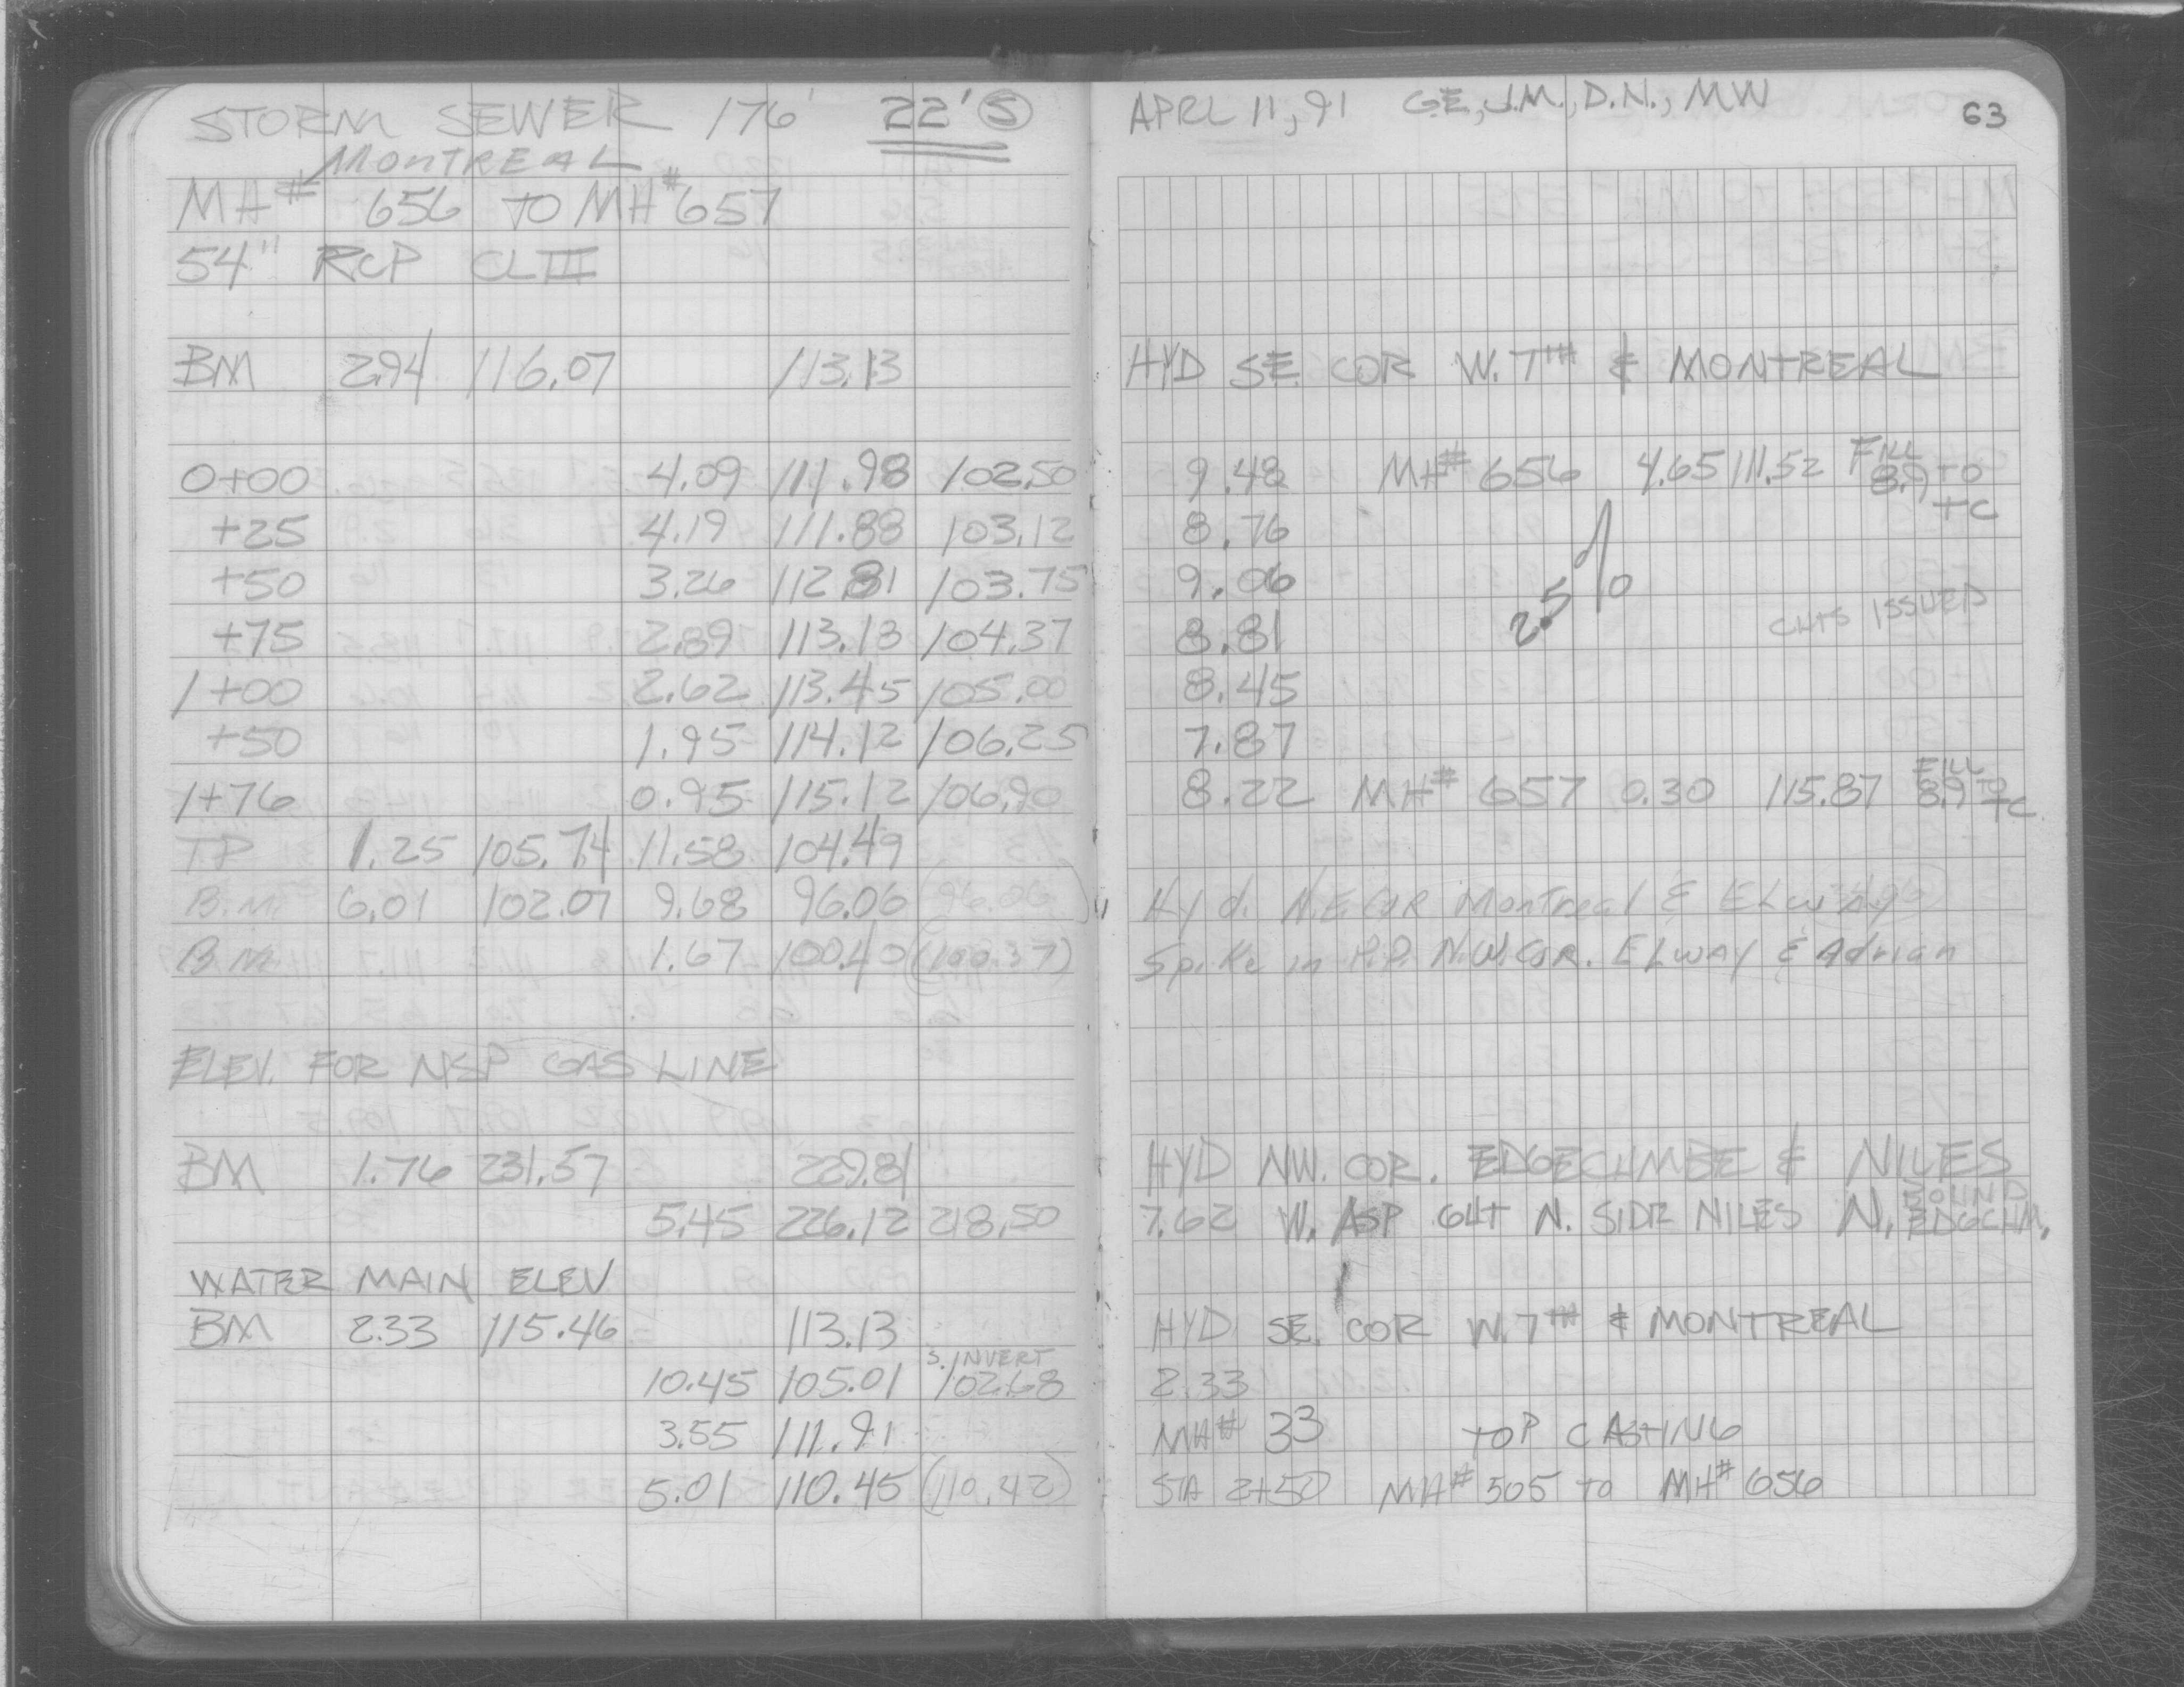 STORM SEWER 176' 22' S
MONTREAL
MH# 656 TO MH#657
54" RCP CL III
BM 2.94 116.07 113.13
0+00 4.09 111.98 102.50
+25 4.19 111.88 103.12
+50 3.26 112.81 103.75
+75 2.89 113.13 104.37
1+00 2.62 113.45 105.00
+50 1.95 114.12 106.25
1+76 0.95 115.12 106.90
TP 1.25 105.74 11.58 104.49
B.M. 6.01 102.07 9.68 96.06 (96.06)
B.M. 1.67 100.40 (100.37)
ELEV. FOR NSP GAS LINE
BM 1.76 231.57 229.81
5.45 226.12 218.50
WATER MAIN ELEV
BM 2.33 115.46 113.13
S. INVERT
10.45 105.01 102.68
3.55 111.91
5.01 110.45 (110.42)
APRL 11, 91 G.E., J.M., D.N., MW 63
HYD SE. COR W. 7TH & MONTREAL
9.48 MH# 656 4.65 111.52 FILL 8.9 TO TC
8.76
9.06
2.5%
CUTS ISSUED
8.81
8.45
7.87
8.22 MH# 657 0.30 115.87 FILL 8.9 TO TC
Hyd. N.E. COR Montreal &
Spike in P.P. N.W. COR. ELWAY & Adrian
HYD NW. COR. EDGECUMBE & NILES
7.62 W. ASP GUT N. SIDE NILES N. BOUND EDGCUM.
HYD SE. COR W. 7TH & MONTREAL
2.33
MH# 33 TOP CASTING
STA 2+50 MH# 505 TO MH# 656